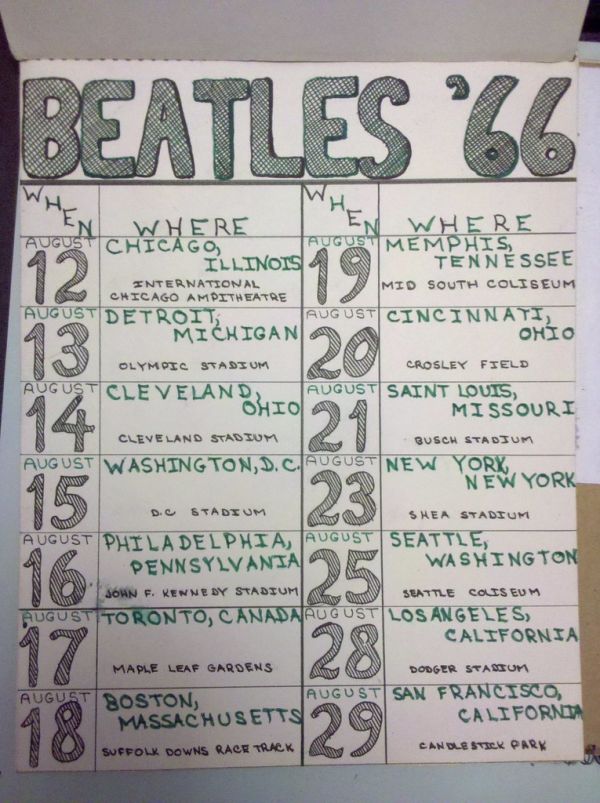 BEATLES '66
WHEN
WHERE
AUGUST
12
CHICAGO,
ILLINOIS
INTERNATIONAL
CHICAGO AMPITHEATRE
AUGUST
13
DETROIT,
MICHIGAN
OLYMPIC STADIUM
AUGUST
14
CLEVELAND,
OHIO
CLEVELAND STADIUM
AUGUST
15
WASHINGTON, D.C.
D.C STADIUM
AUGUST
16
PHILADELPHIA,
PENNSYLVANIA
JOHN F. KENNEDY STADIUM
AUGUST
17
TORONTO, CANADA
MAPLE LEAF GARDENS
AUGUST
18
BOSTON,
MASSACHUSETTS
SUFFOLK DOWNS RACE TRACK
WHEN
WHERE
AUGUST
19
MEMPHIS,
TENNESSEE
MID SOUTH COLISEUM
AUGUST
20
CINCINNATI,
OHIO
CROSLEY FIELD
AUGUST
21
SAINT LOUIS,
MISSOURI
BUSCH STADIUM
AUGUST
23
NEW YORK,
NEW YORK
SHEA STADIUM
AUGUST
25
SEATTLE,
WASHINGTON
SEATTLE COLISEUM
AUGUST
28
LOS ANGELES,
CALIFORNIA
DODGER STADIUM
AUGUST
29
SAN FRANCISCO,
CALIFORNIA
CANDLESTICK PARK